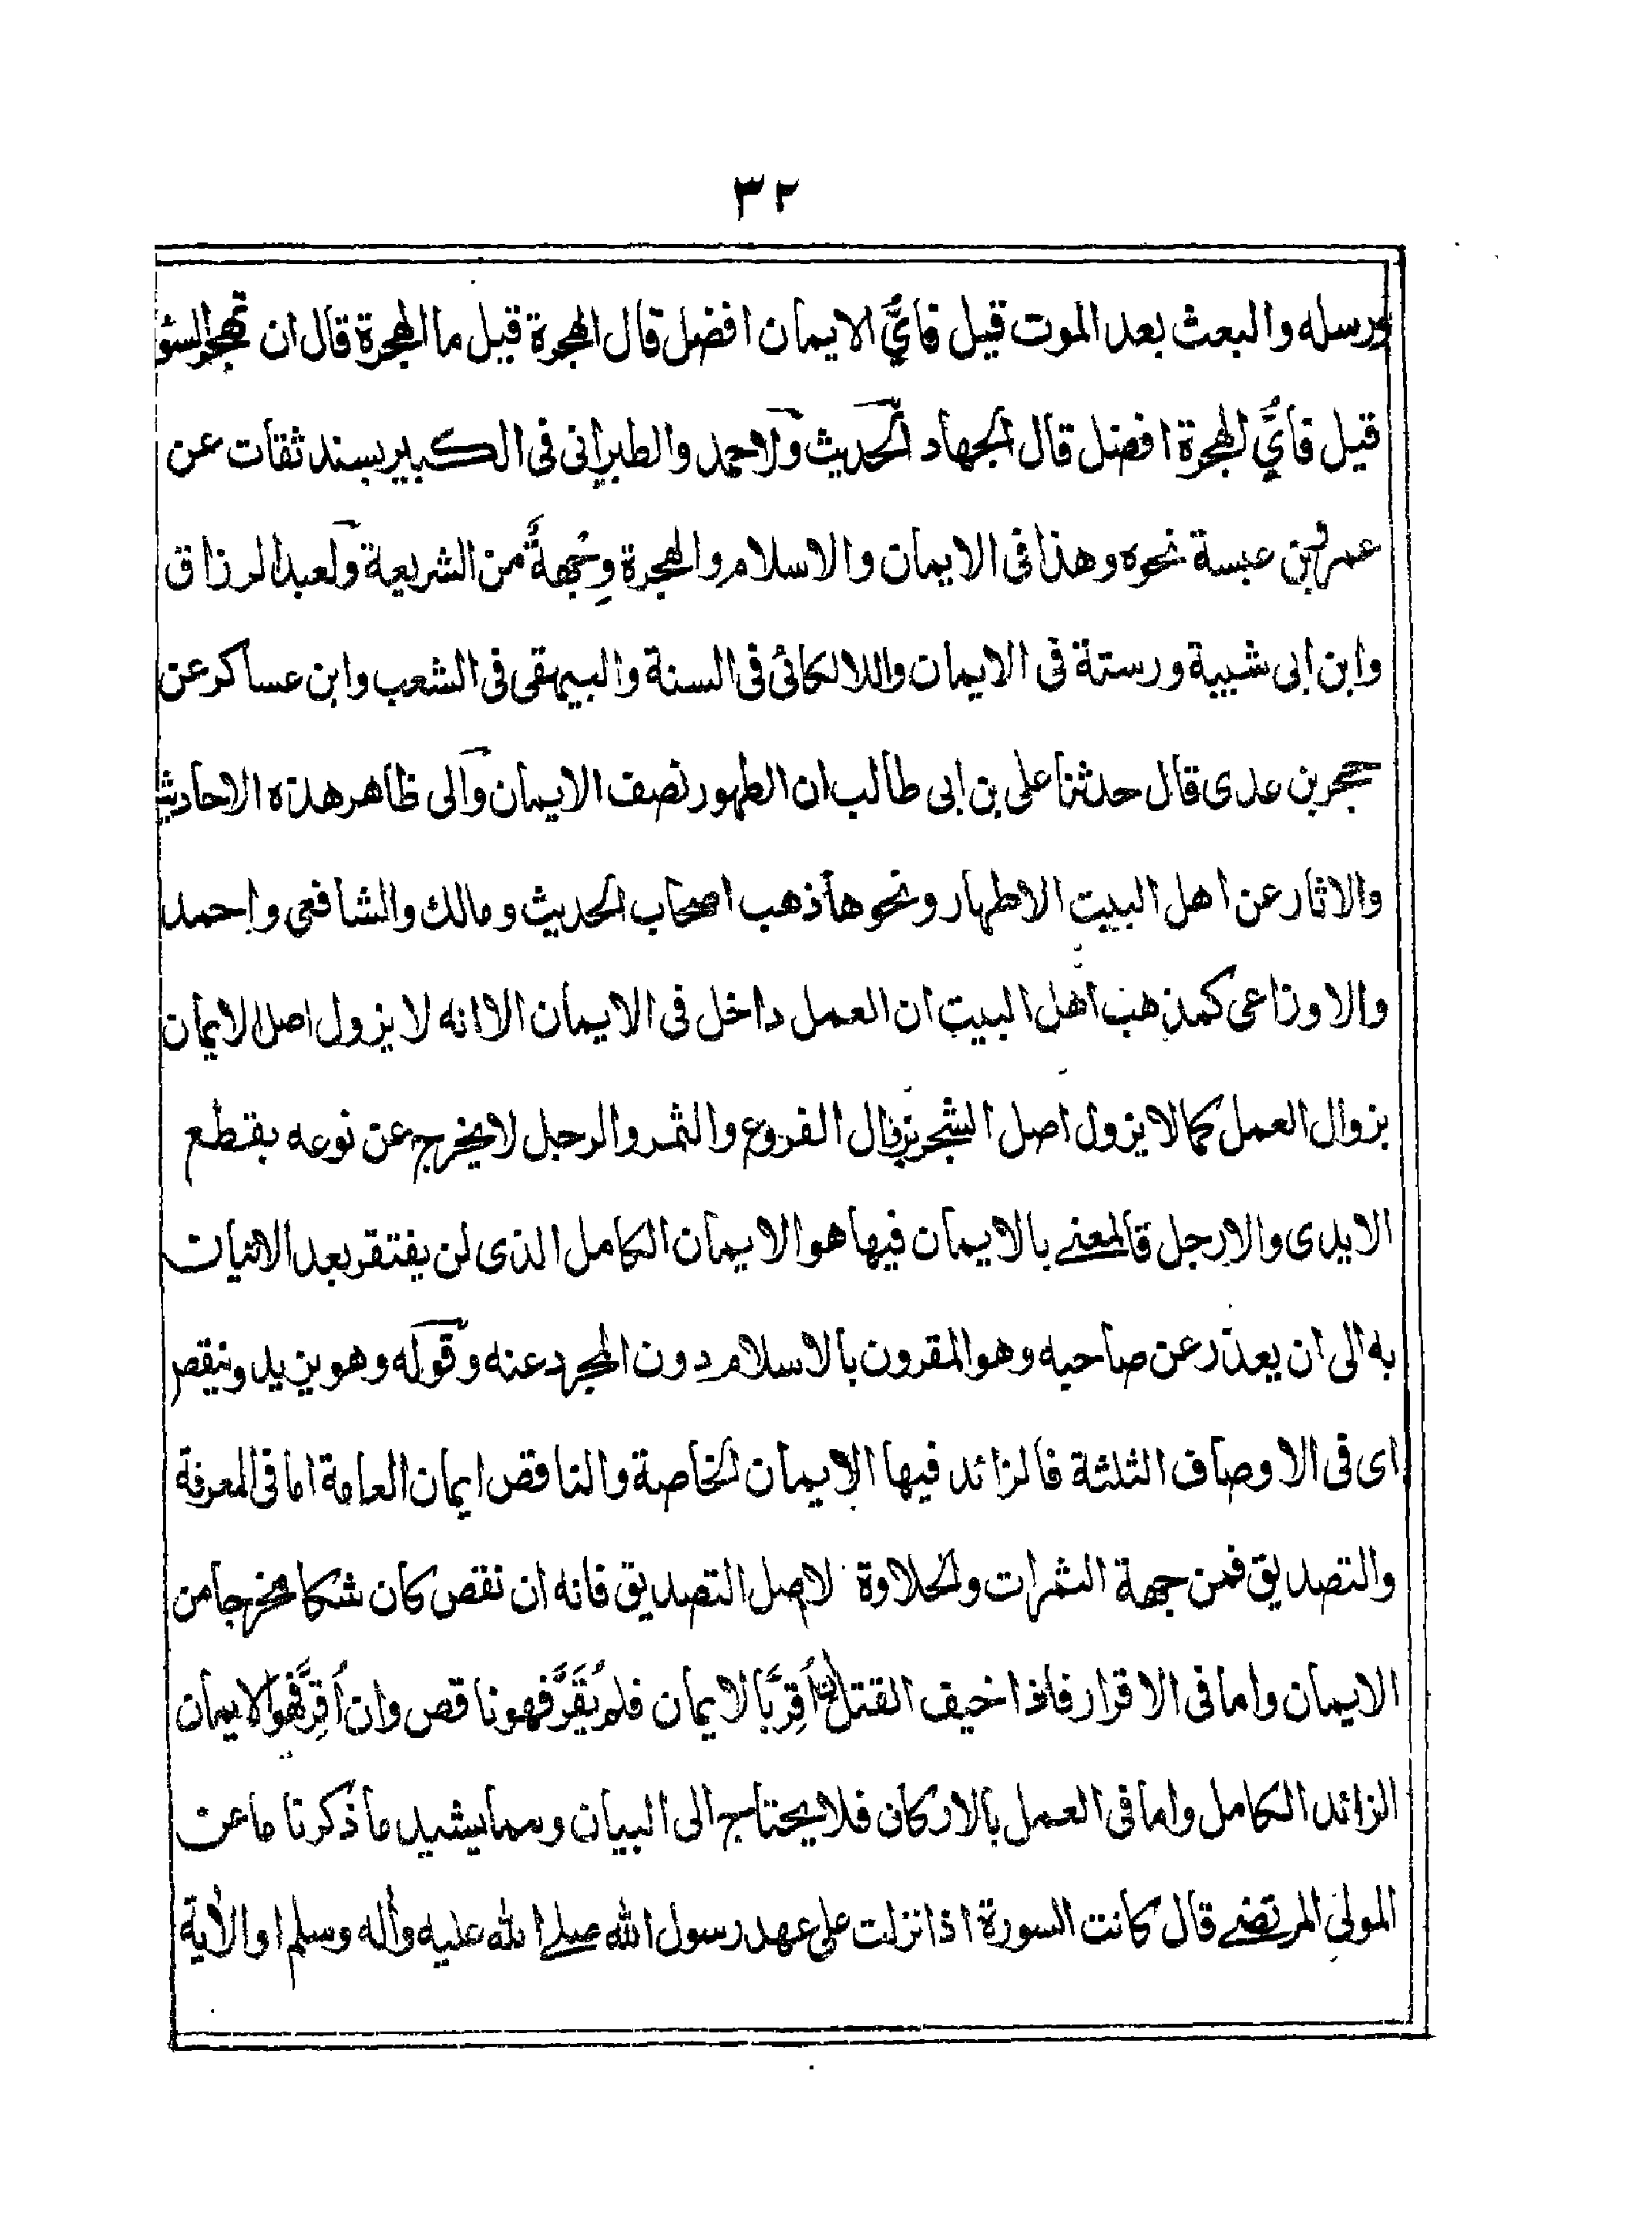 ٣٢
ورسله والبعث بعد الموت قيل فايُّ الايمان افضل قال الهجرة قيل ما الهجرة قال ان تهجر السوء
قيل فايُّ الهجرة افضل قال الجهاد الحديث ولاحمد والطبرانى فى الكبير بسند ثقات عن
عمرو بن عبسة نحوه وهذا فى الايمان والاسلام والهجرة وِجُهةٌ من الشريعة ولعبد الرزاق
وابن ابى شيبة ورستة فى الايمان واللالكائى فى السنة والبيهقى فى الشعب وابن عساكر عن
حجر بن عدى قال حدثنا على بن ابى طالب ان الطهور نصف الايمان والى ظاهر هذه الاحاديث
والاثار عن اهل البيت الاطهار ونحوها ذهب اصحاب الحديث ومالك والشافعى واحمد
والاوزاعى كمذهب اهل البيت ان العمل داخل فى الايمان الا انه لا يزول اصل الايمان
بزوال العمل كما لا يزول اصل الشجر بزوال الفروع والثمر والرجل لا يخرج عن نوعه بقطع
الايدى والارجل فالمعنے بالايمان فيها هو الايمان الكامل الذى لن يفتقر بعد الاتيات
به الى ان يعذر عن صاحبه وهو المقرون بالاسلام دون المجرد عنه وقوله وهو يزيد وينقص
اى فى الاوصاف الثلثة فالزائد فيها الايمان الخاصة والناقص ايمان العامة اما فى المعرفة
والتصديق فمن جهة الثمرات والحلاوة لا اصل التصديق فانه ان نقص كان شكا مخرجا من
الايمان واما فى الاقرار فاذا خيف القتل ان اُقِرَّ بالايمان فلم يُقَرَّ فهو ناقص وان اُقِرَّ فهو الايمان
الزائد الكامل واما فى العمل بالاركان فلا يحتاج الى البيان ومما يشيد ما ذكرنا ما عن
المولى المرتضے قال كانت السورة اذا نزلت على عهد رسول الله صلے الله عليه وآله وسلم او الآية